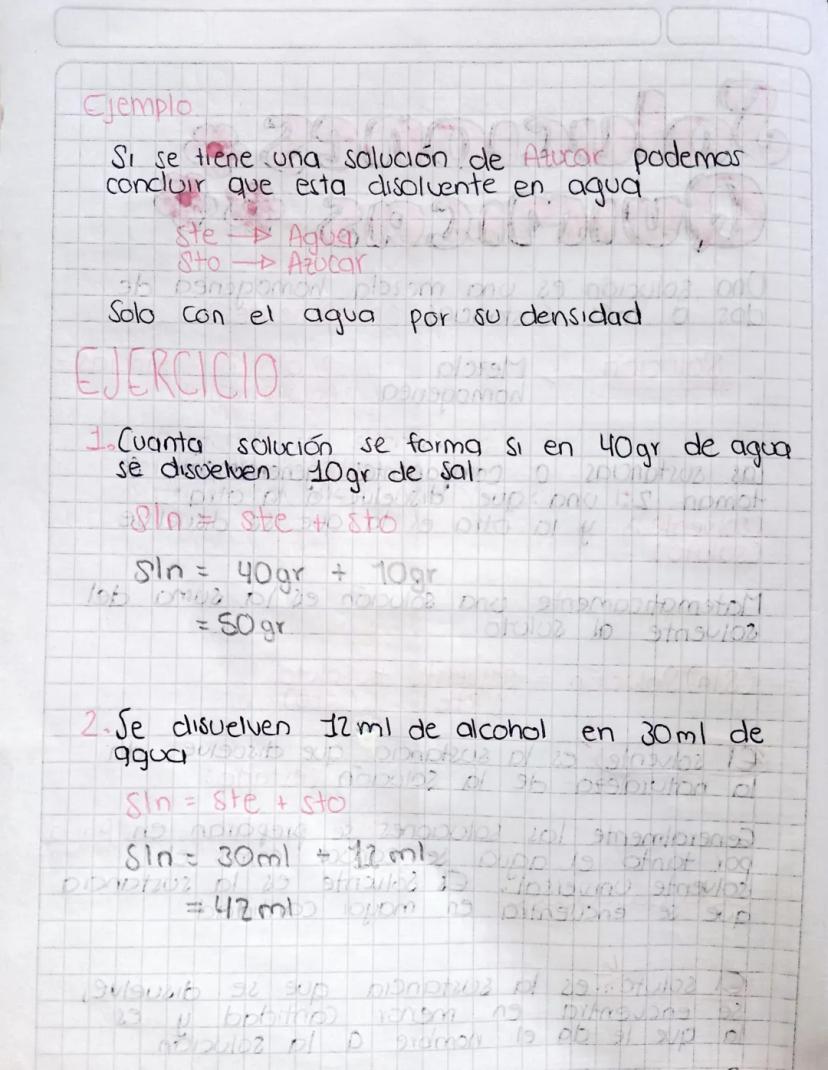 Ejemplo
Si se tiene una solución de Azucar podemos
concluir que esta disolvente en agua
Ste → Agua
Sto → Azucar
Solo con el agua por su densidad
EJERCICIO
1. Cuanta solución se forma si en 40gr de agua
se disuelven 10gr de sal
Sln = ste + sto
Sln = 40gr + 10gr
= 50gr
2. Se disuelven 12ml de alcohol en 30ml de
agua
Sln = Ste + sto
Sln = 30ml + 12ml
= 42ml